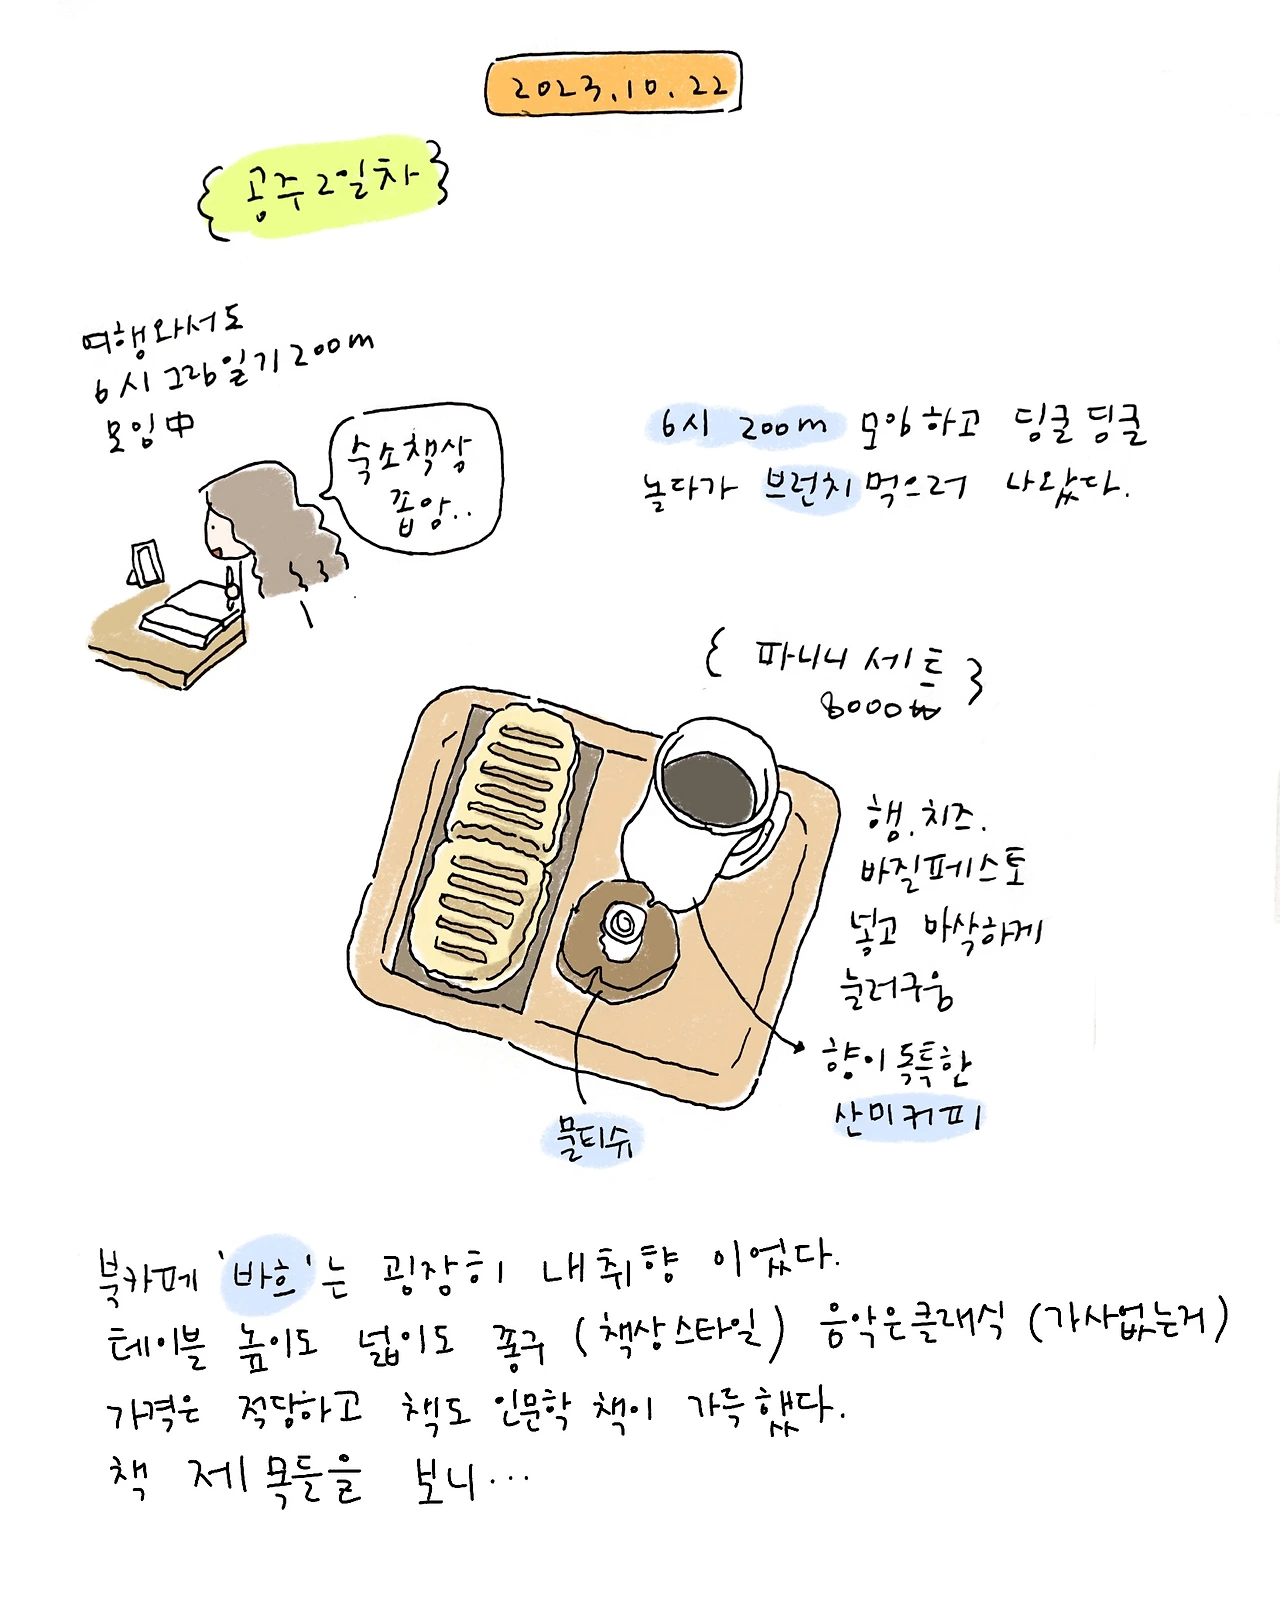 2023.10.22
공주 2일차
여행와서도
6시 그림일기 200m
모임中
숙소책상
쫍앙..
6시 200m 모임하고 딩굴딩굴
놀다가 브런치 먹으러 나왔다.
{ 파니니 세트 }
8000₩
햄.치즈.
바질페스토
넣고 바삭하게
눌러구움
향이 독특한
산미커피
물티슈
북카페 '바흐'는 굉장히 내취향 이었다.
테이블 높이도 넓이도 좋구 (책상스타일) 음악은클래식 (가사없는거)
가격은 적당하고 책도 인문학 책이 가득했다.
책 제목들을 보니...